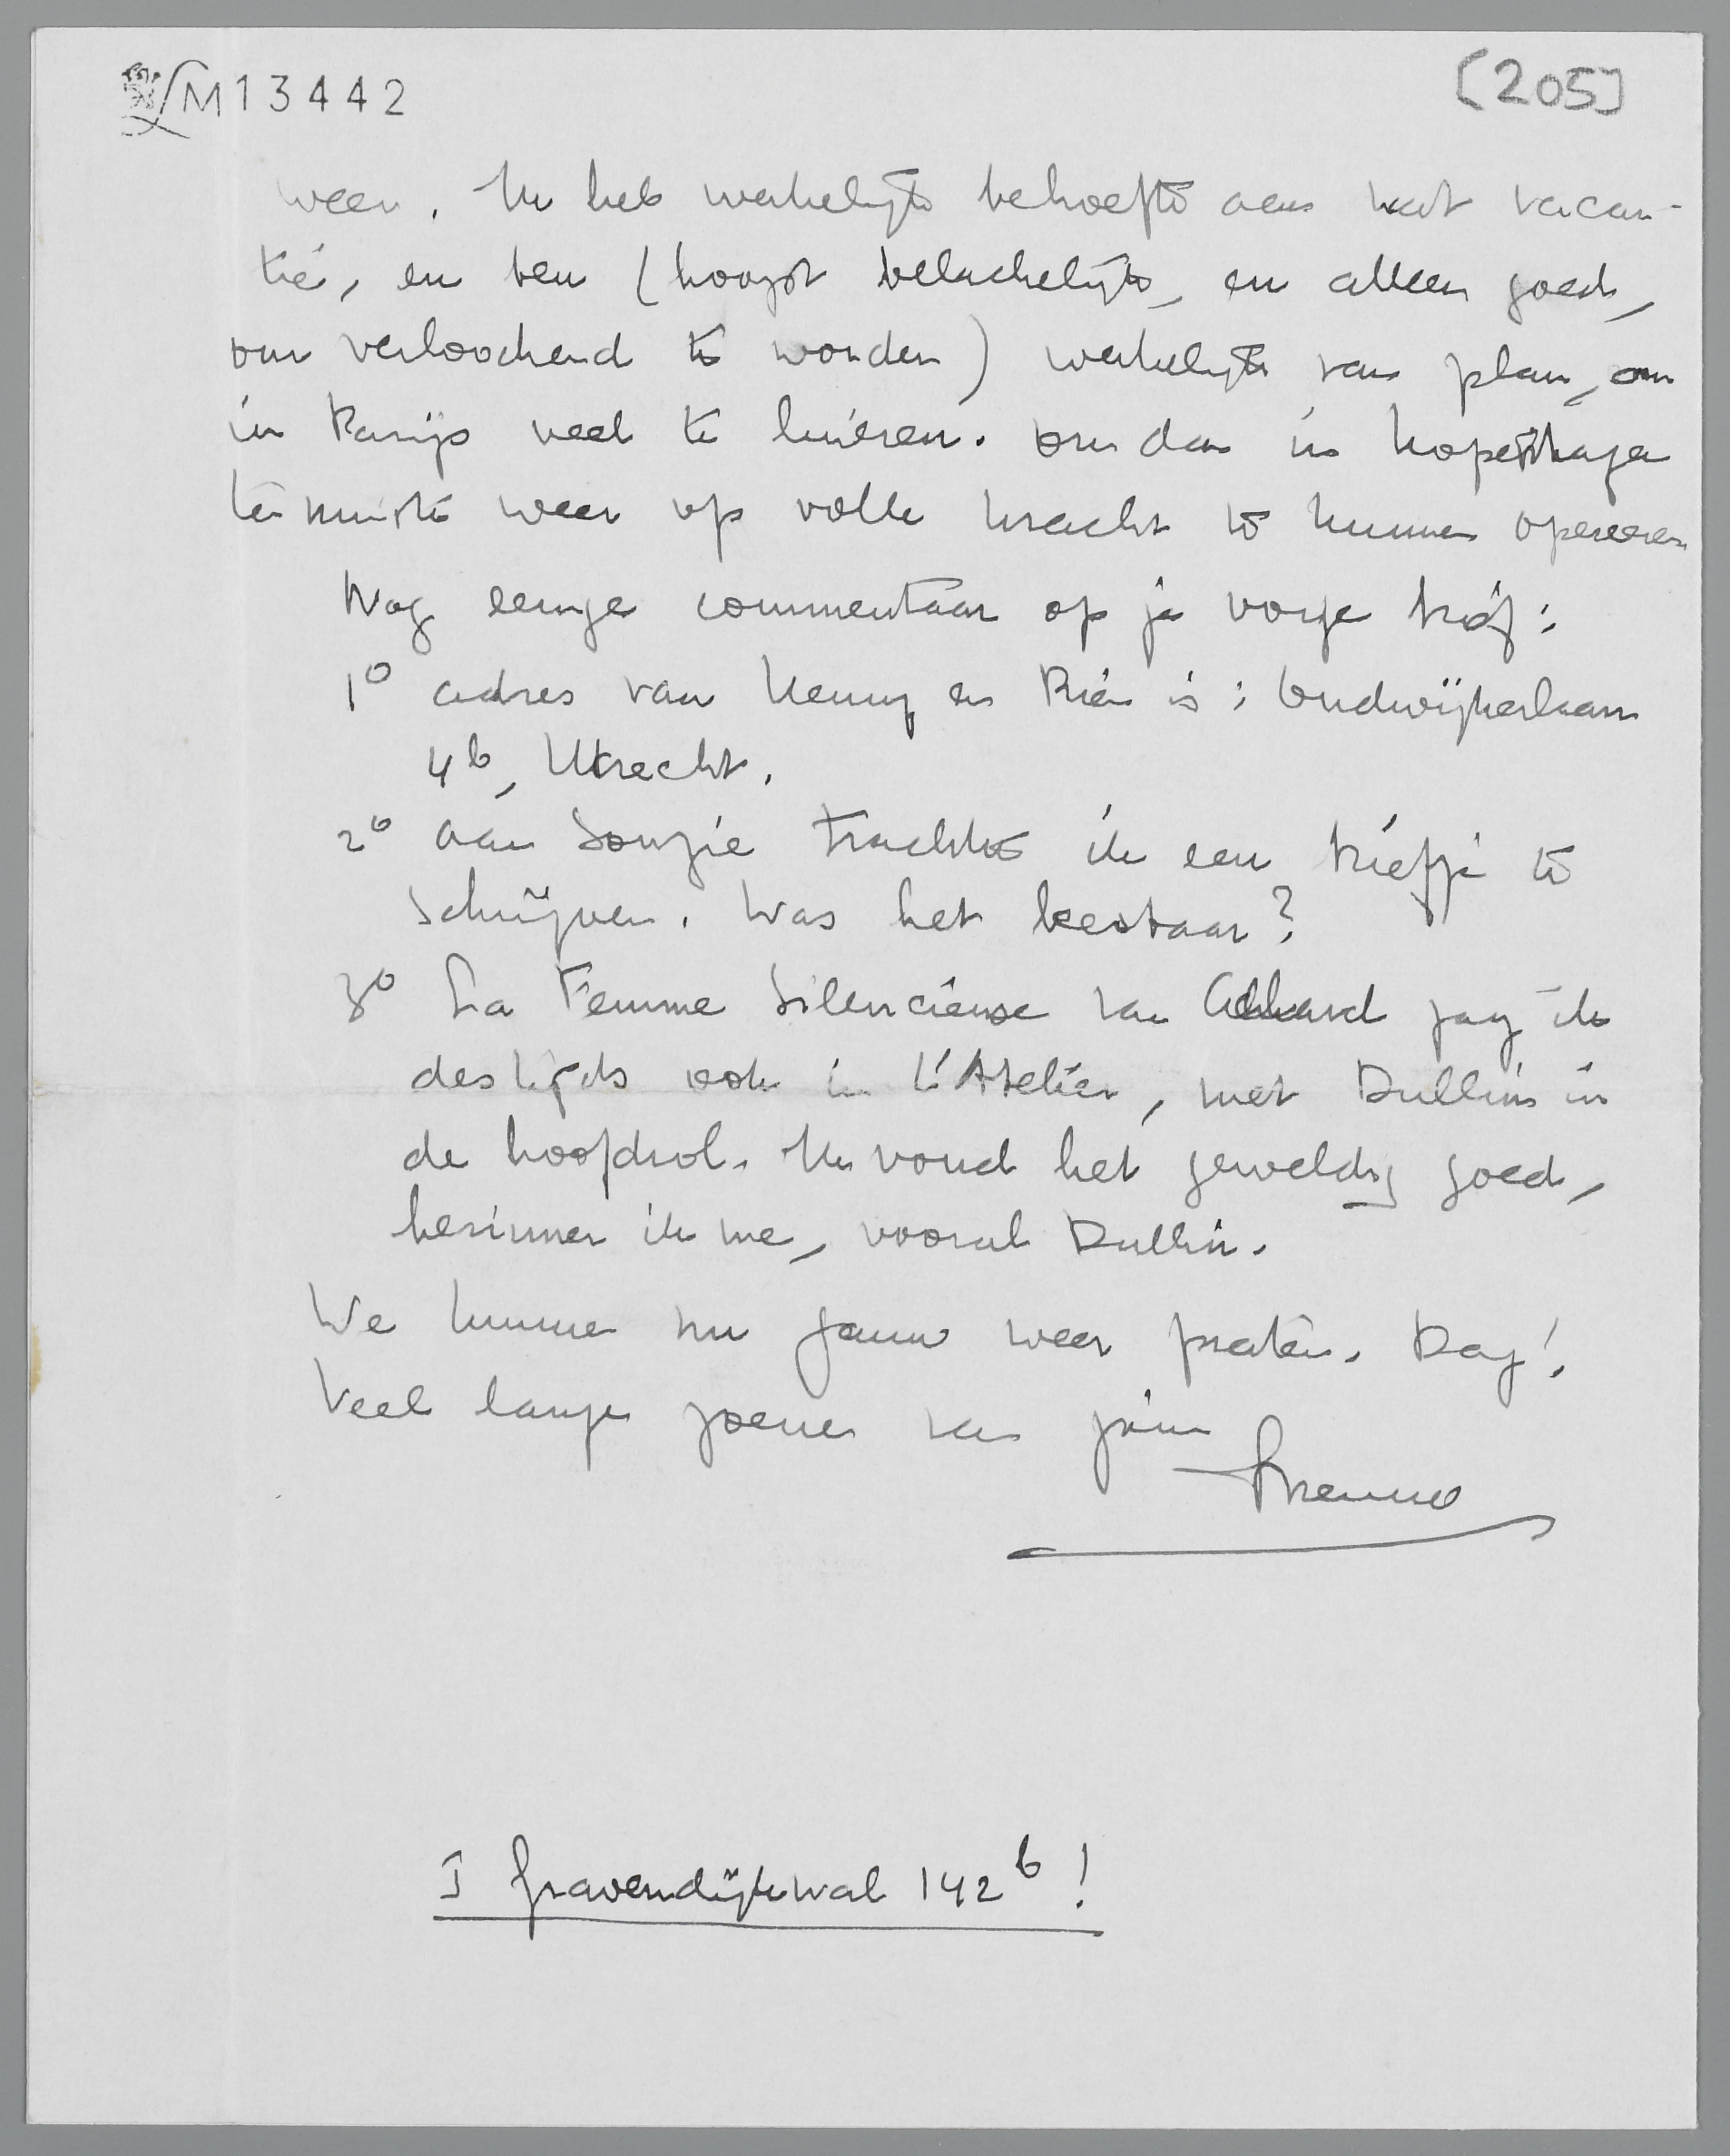 LM 13442
[205]
weer. Ik heb werkelijk behoefte aan wat vacan-
tie, en ben (hoogst belachelijk, en alleen goed,
om verloochend te worden) werkelijk van plan, om
in Parijs veel te luieren. om dan in Kopenhagen
tenminste weer op volle kracht te kunnen opereeren
Nog eenige commentaar op je vorige brief:
1° adres van Henny en Rien is: Oudwijkerlaan
4b, Utrecht.
2° aan trachtte ik een briefje te
schrijven. Was het leesbaar?
3° La Femme Silencieuse van Achard zag ik
destijds ook in l'Atelier, met Dullin in
de hoofdrol. Ik vond het geweldig goed,
herinner ik me, vooral Dullin.
We kunnen nu gauw weer praten. Dag!
Veel lange zoenen van jouw
Menno
's Gravendijkwal 142b!